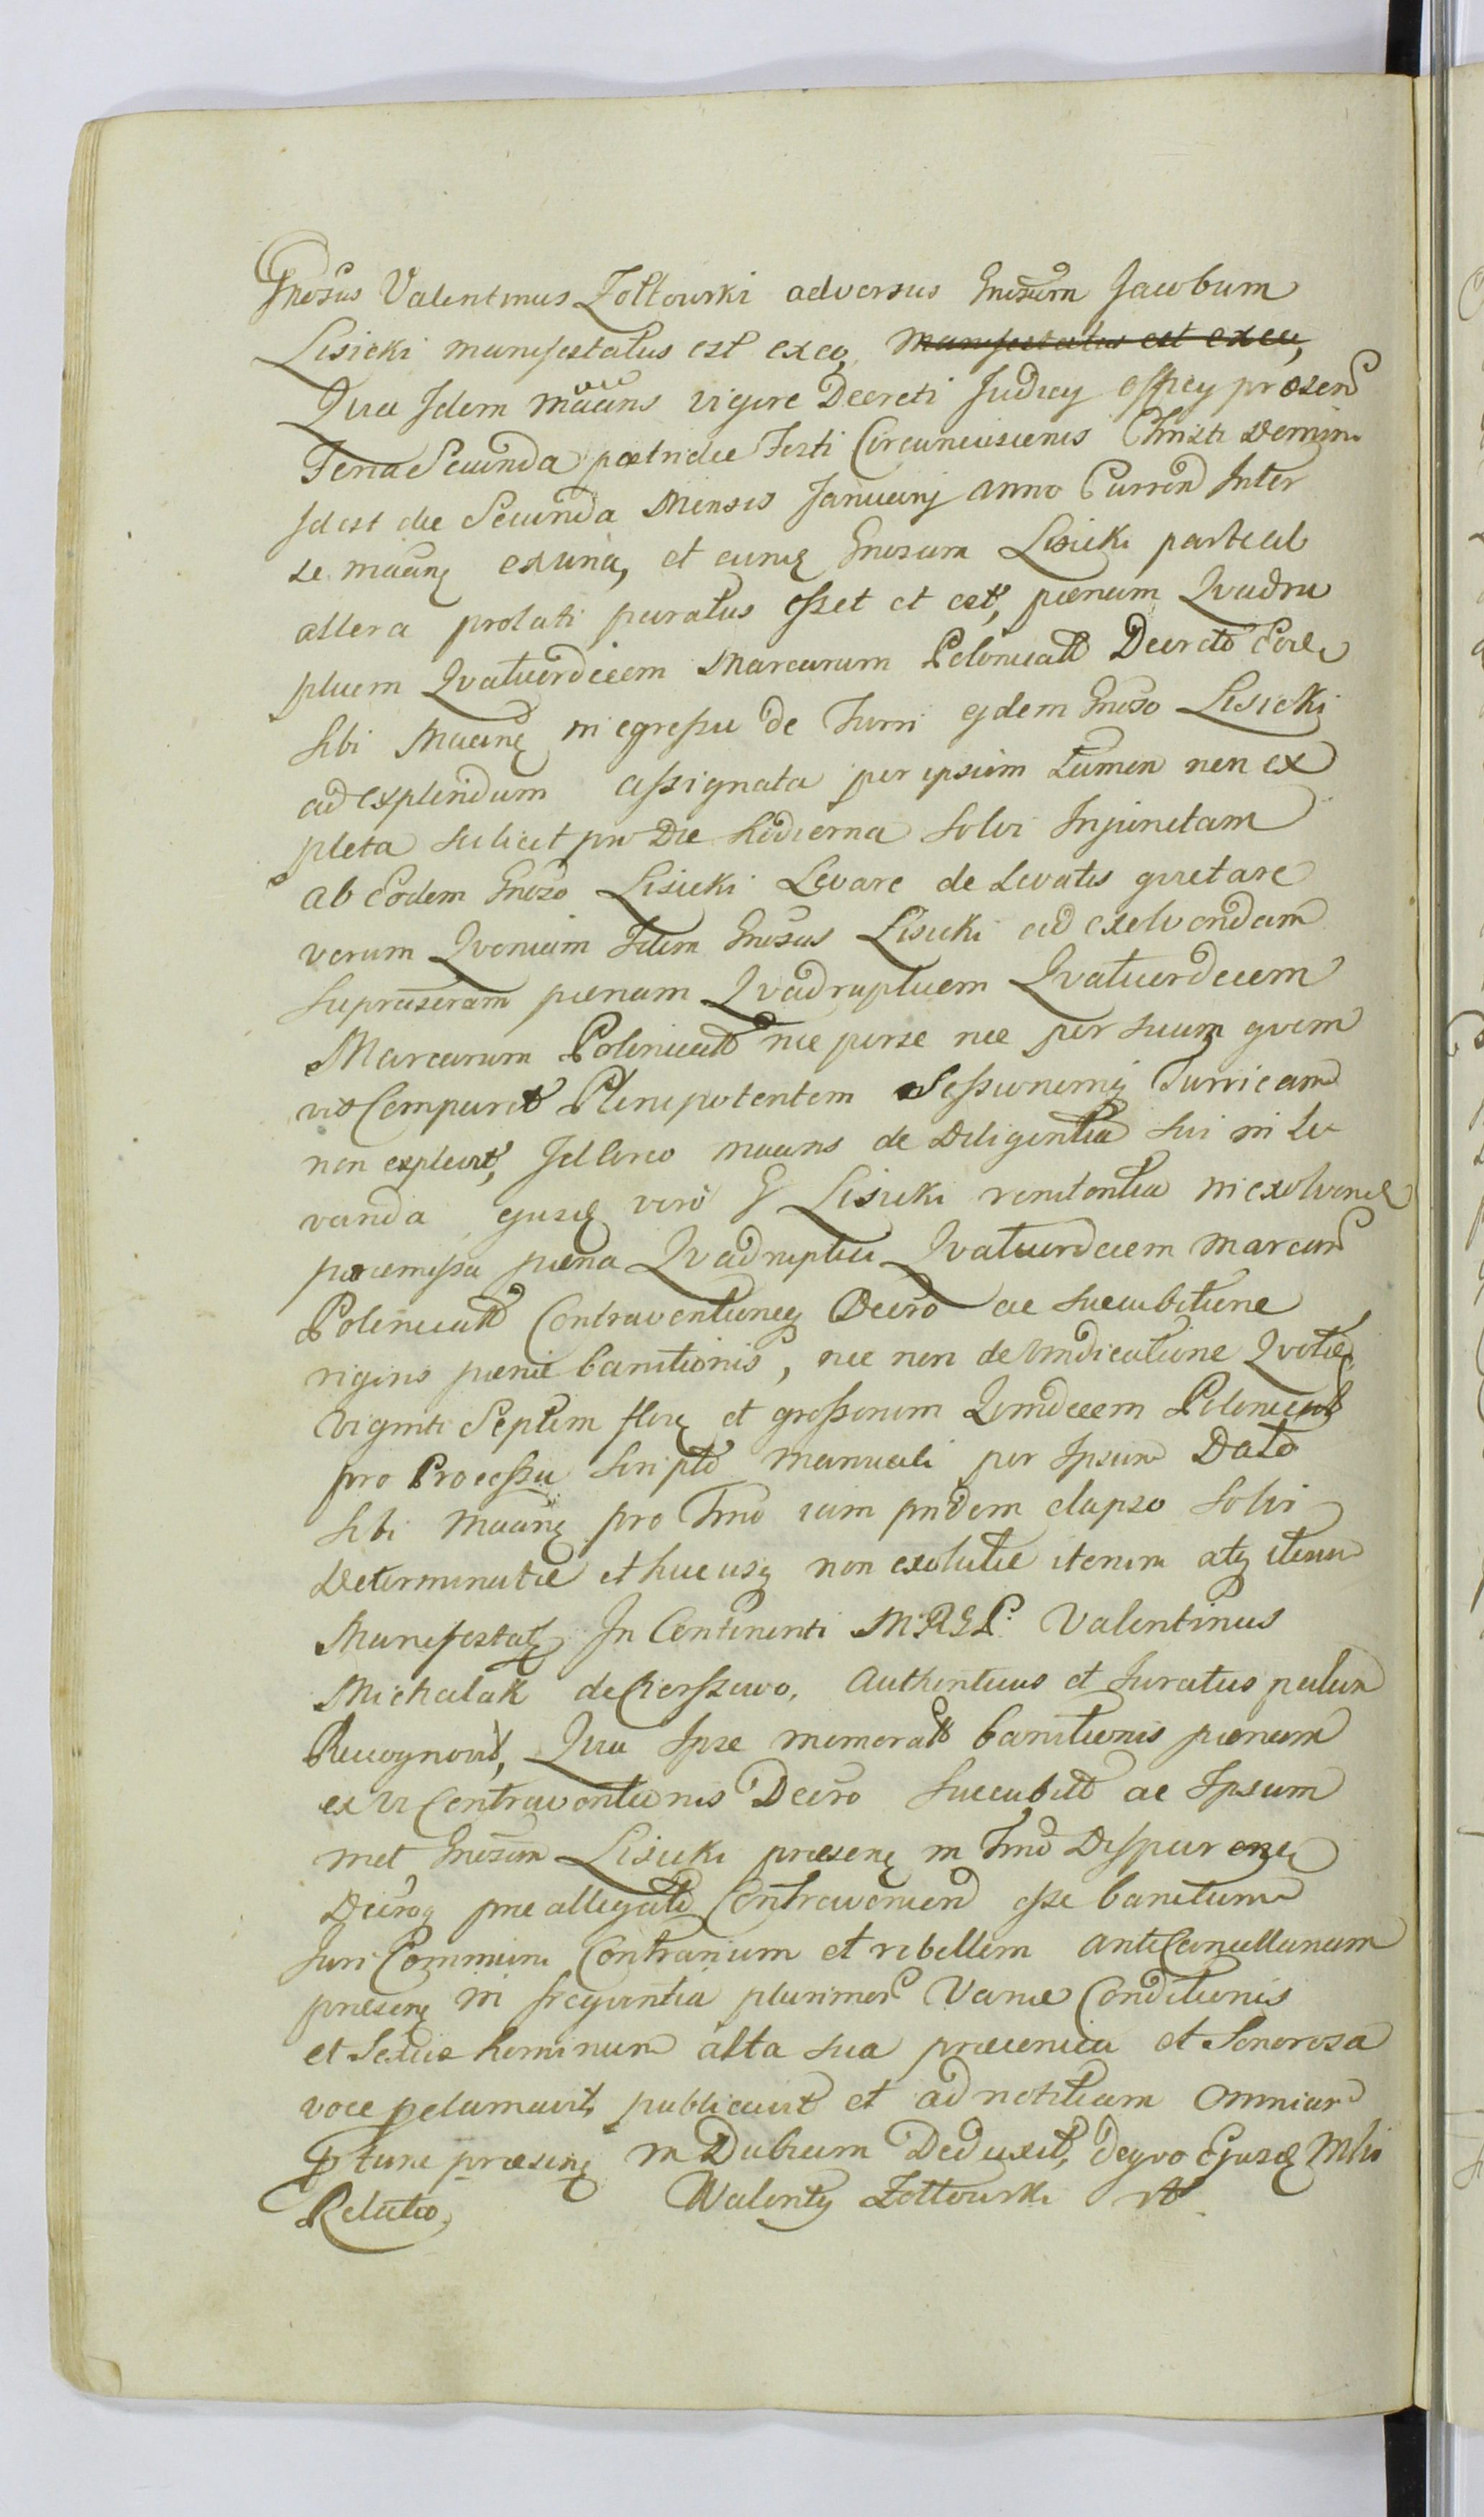 Gnosus Valentinus Zołtowski adversus Gnosum Jacobum
Lisicki manifestatus est exeo, manifestatus est exeo,
Quia Idem maans vigore Decreti Judicy officy praesen
Feria Secunda postridie Festi Circumcisionis Christi Domini
Idest die Secunda Mensis Januarij anno Curren Inter
se maanę exuna, et eumę Gnosum Lisicki parte ab
altera prolati paratus esset et est, paenam Quadru
pluem Quatuordecem Marcarum Polonicall Decreto Eod
sibi Maanę in egressu de Turri ejdem Gnoso Lisicki
ad explendum assignata per ipsum tamen non ex
pleta scilicet pro Die hodierna solvi Injunctam
ab Eodem Gnoso Lisicki Levare de Levatis quietare
verum Quoniam Idem Gnosus Lisicki ad exolvendam
supraseram paenam Quadrupluem Quatuordecem
Marcarum Polonicall nec perse nec per suum quem
vis Comparet Plenipotentem Sessionemq Turricam
non explevit, Idcirco maans de Diligentia sui in Le
vanda ejusd vero G Lisicki renitentia in exolvend
praemissa paena Quadruplici Quatuordecem marcar
Polonicall Contraventioneq Decro ac succubitione
rigins paenae banitionis, nec non de Vindicatione Quotae
viginti Septem flor et grossorum Quindecem Polonical
pro Processu scripto manuali per Ipsum Dato
sibi Maanę pro Tmo iam pridem elapso solvi
Determinatae et hucusq non exolutae iterum atq iterum
Manifestatę In Continenti M.R.G.P. Valentinus
Michalak de Cierszewo, Authenticus et Juratus palam
Recognovit, Quia Ipse memorall banitionis paenam
ex vi Contraventionis Decro succubill ac Ipsum
met Gnosum Lisicki praesenę in Tmo Disparenę
Decroq prae allegato Contravenien esse banitum
Juri Communi Contrarium et rebellem anteCancellanam
praesenę in frequentia plurimor Variae Conditionis
et Sexus hominum alta sua praeconica et Sonorosa
voce pclamavit, publicavit et ad notitiam omnium
ptunc praesenę in Dubium Deduxit, deqvo Ejusd Mlis
Relatio, Walenty Zołtowski